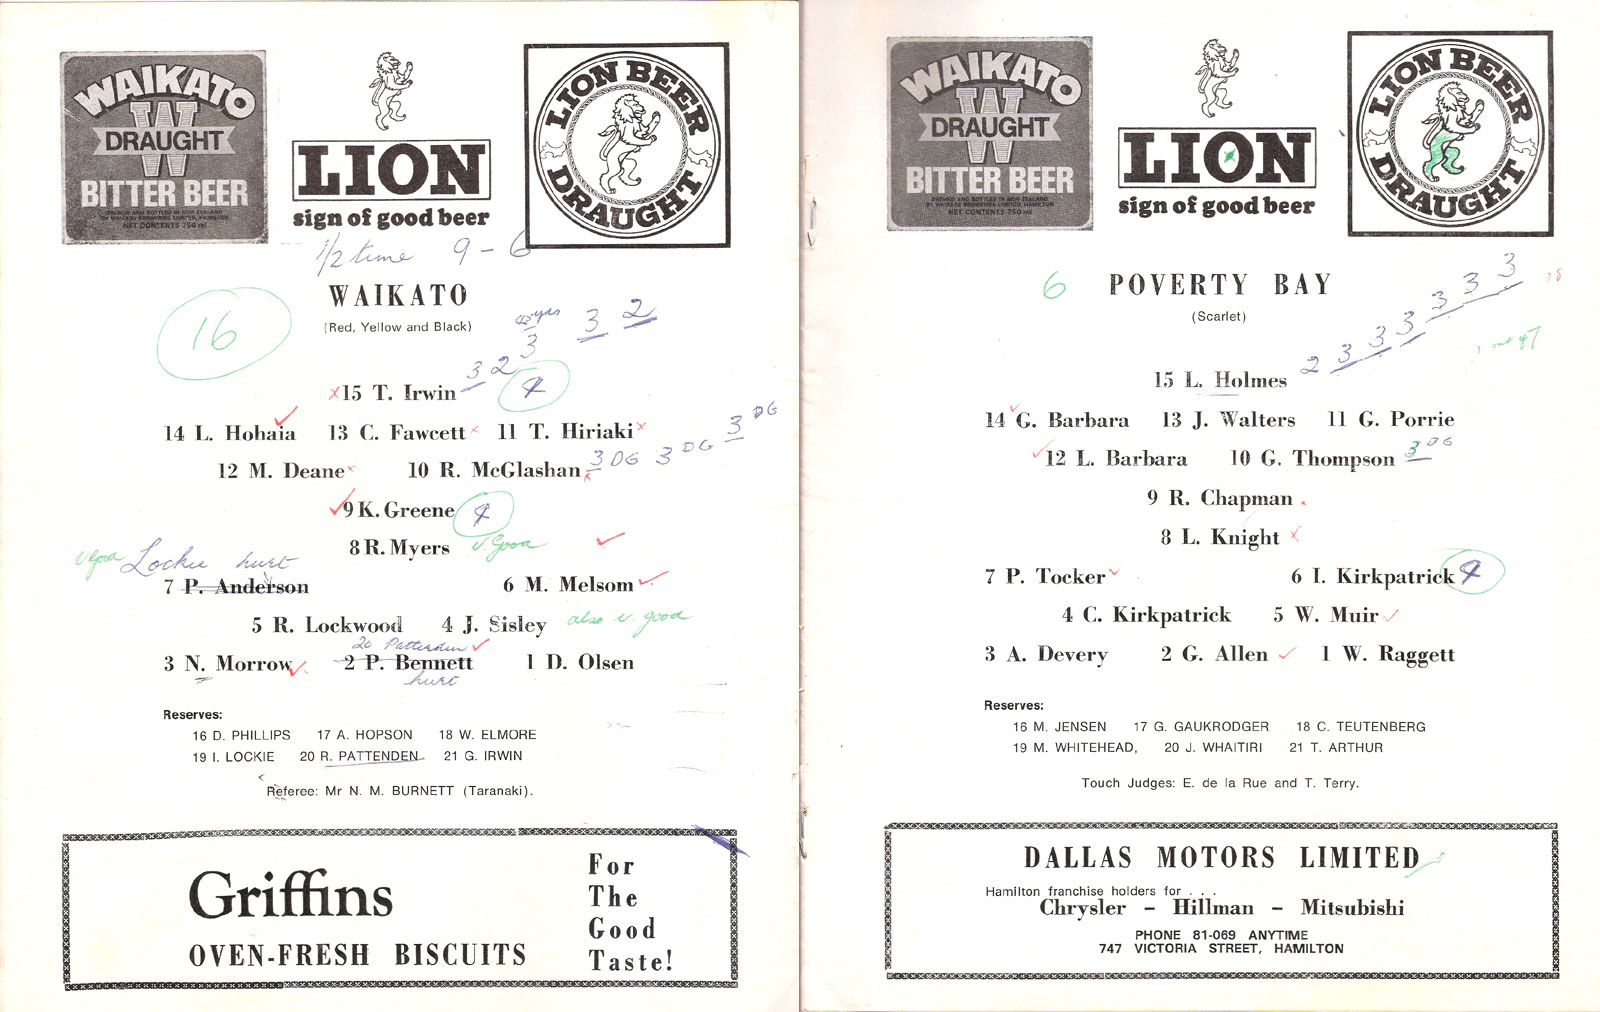 WAIKATO
W
DRAUGHT
BITTER BEER
BREWED AND BOTTLED IN NEW ZEALAND
BY WAIKATO BREWERIES LIMITED, HAMILTON
NET CONTENTS 750 ml
LION
sign of good beer
LION BEER
DRAUGHT
1/2 time 9 - 6
WAIKATO
(Red, Yellow and Black)
16
3 2 3 3 2
x15 T. Irwin 4
14 L. Hohaia 13 C. Fawcett x 11 T. Hiriaki x
12 M. Deane x 10 R. McGlashan 3 DG 3 DG 3 DG
9 K. Greene 4
8 R. Myers v. Good
v Good Lockie hurt
7 P. Anderson 6 M. Melsom
5 R. Lockwood 4 J. Sisley also v. good
20 Pattenden
3 N. Morrow 2 P. Bennett 1 D. Olsen
hurt
Reserves:
16 D. PHILLIPS 17 A. HOPSON 18 W. ELMORE
19 I. LOCKIE 20 R. PATTENDEN 21 G. IRWIN
Referee: Mr N. M. BURNETT (Taranaki).
Griffins
OVEN-FRESH BISCUITS
For
The
Good
Taste!
WAIKATO
W
DRAUGHT
BITTER BEER
BREWED AND BOTTLED IN NEW ZEALAND
BY WAIKATO BREWERIES LIMITED, HAMILTON
NET CONTENTS 750 ml
LION
sign of good beer
LION BEER
DRAUGHT
6 POVERTY BAY
(Scarlet)
2 3 3 3 3 3 3
15 L. Holmes
14 G. Barbara 13 J. Walters 11 G. Porrie
12 L. Barbara 10 G. Thompson 3 DG
9 R. Chapman
8 L. Knight x
7 P. Tocker 6 I. Kirkpatrick 4
4 C. Kirkpatrick 5 W. Muir
3 A. Devery 2 G. Allen 1 W. Raggett
Reserves:
16 M. JENSEN 17 G. GAUKRODGER 18 C. TEUTENBERG
19 M. WHITEHEAD, 20 J. WHAITIRI 21 T. ARTHUR
Touch Judges: E. de la Rue and T. Terry.
DALLAS MOTORS LIMITED
Hamilton franchise holders for . . .
Chrysler – Hillman – Mitsubishi
PHONE 81-069 ANYTIME
747 VICTORIA STREET, HAMILTON